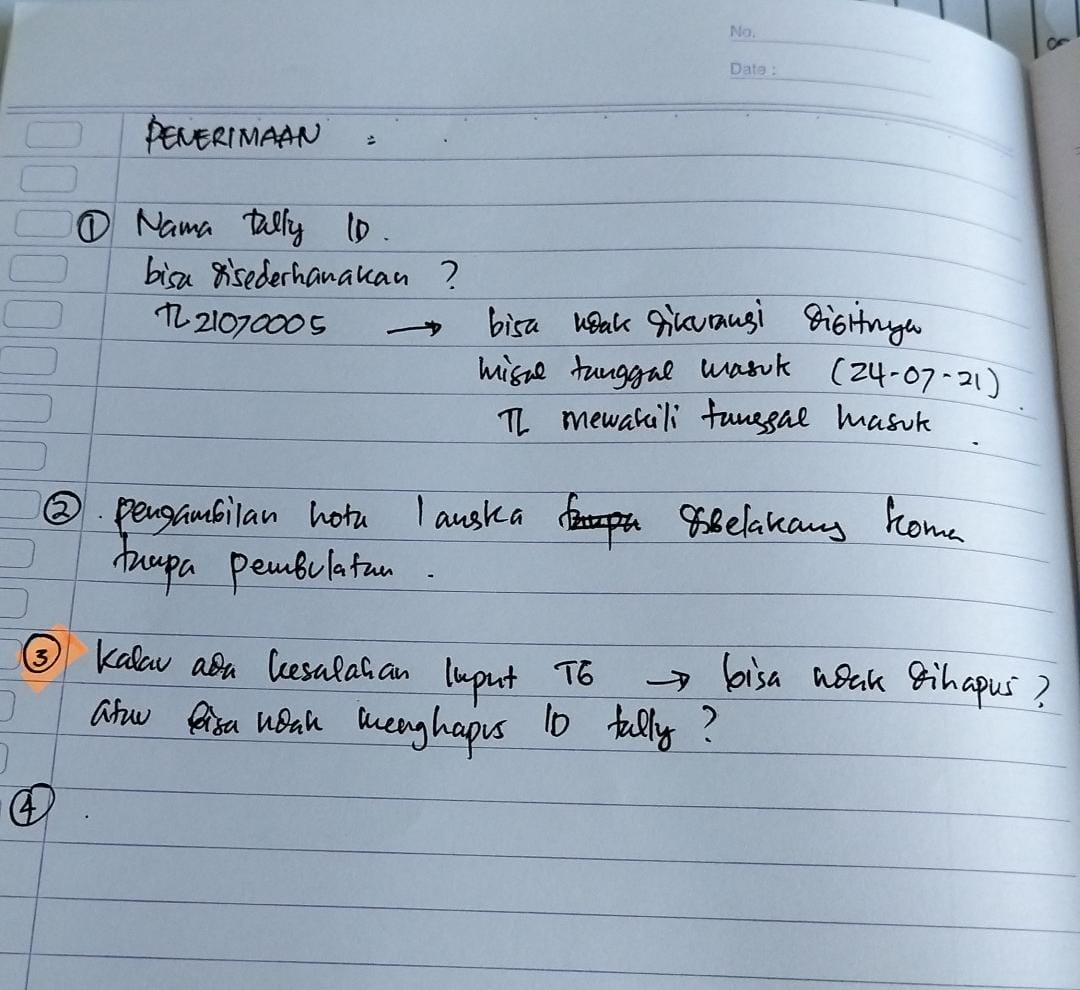 No.
Date :
PENERIMAAN :
① Nama tally ID.
bisa disederhanakan ?
TL 21070005 → bisa ndak dikurangi digitnya
misal tanggal masuk (24-07-21).
TL mewakili tanggal masuk.
② . pengambilan nota 1 angka dibelakang koma
tanpa pembulatan .
③ Kalau ada kesalahan input TG → bisa ndak dihapus ?
atau bisa ndak menghapus ID tally ?
④ .